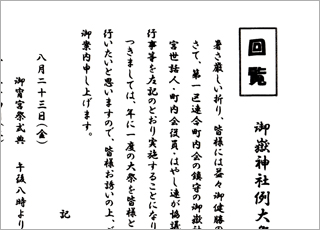 回覧
御嶽神社例大
暑さ厳しい折り、皆様には益々御健勝の
さて、第一己連合町内会の鎮守の御嶽社
宮世話人・町内会役員・はやし連が協議
行事等を左記のとおり実施することになり
つきましては、年に一度の大祭を皆様と
行いたいと思いますので、皆様お誘いの上、
御案内申し上げます。
記
八月二十三日(金)
御宵宮祭式典 午後八時より